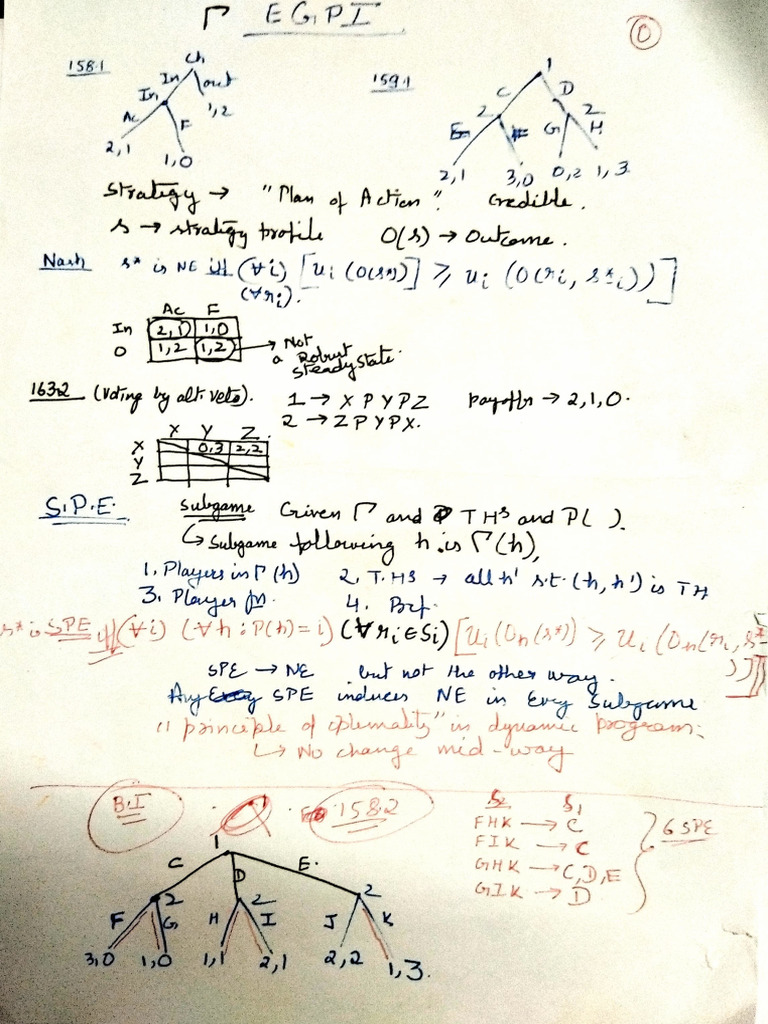 Γ EGPI
0
158.1
Ch
In
out
In
1,2
Ac
F
2,1
1,0
159.1
1
C
D
2
2
E
F
G
H
2,1
3,0
0,2
1,3
Strategy → "Plan of Action". Credible.
s → strategy profile O(s) → Outcome.
Nash s* is NE iff (∀i) [ui (O(s*)] ≥ ui (O(ri, s*-i))]
(∀ri).
Ac F
In 2,1 1,0
O 1,2 1,2 → Not
a Robust
steady state.
163.2 (Voting by alt. veto). 1 → X P Y P Z payoffs → 2,1,0.
2 → Z P Y P X.
X Y Z
X 0,3 2,2
Y
Z
S.P.E. Subgame Given Γ and TH's and P( ).
↳ Subgame following h is Γ(h),
1. Players in Γ(h) 2. T.H's → all h' s.t. (h, h') is TH
3. Player fn. 4. Prf.
s* is SPE iff (∀i) (∀h : P(h) = i) (∀ri ∈ Si) [Ui (Oh(s*)) ≥ Ui (Oh(ri, s*-i))]
SPE → NE but not the other way.
Any SPE induces NE in Every Subgame
"principle of optimality" in dynamic program:
↳ No change mid-way
B.I 158.2
S2 S1
FHK → C
FIK → C
GHK → C, D, E
GIK → D
6 SPE
1
C D E.
2 2 2
F G H I J K
3,0 1,0 1,1 2,1 2,2 1,3.